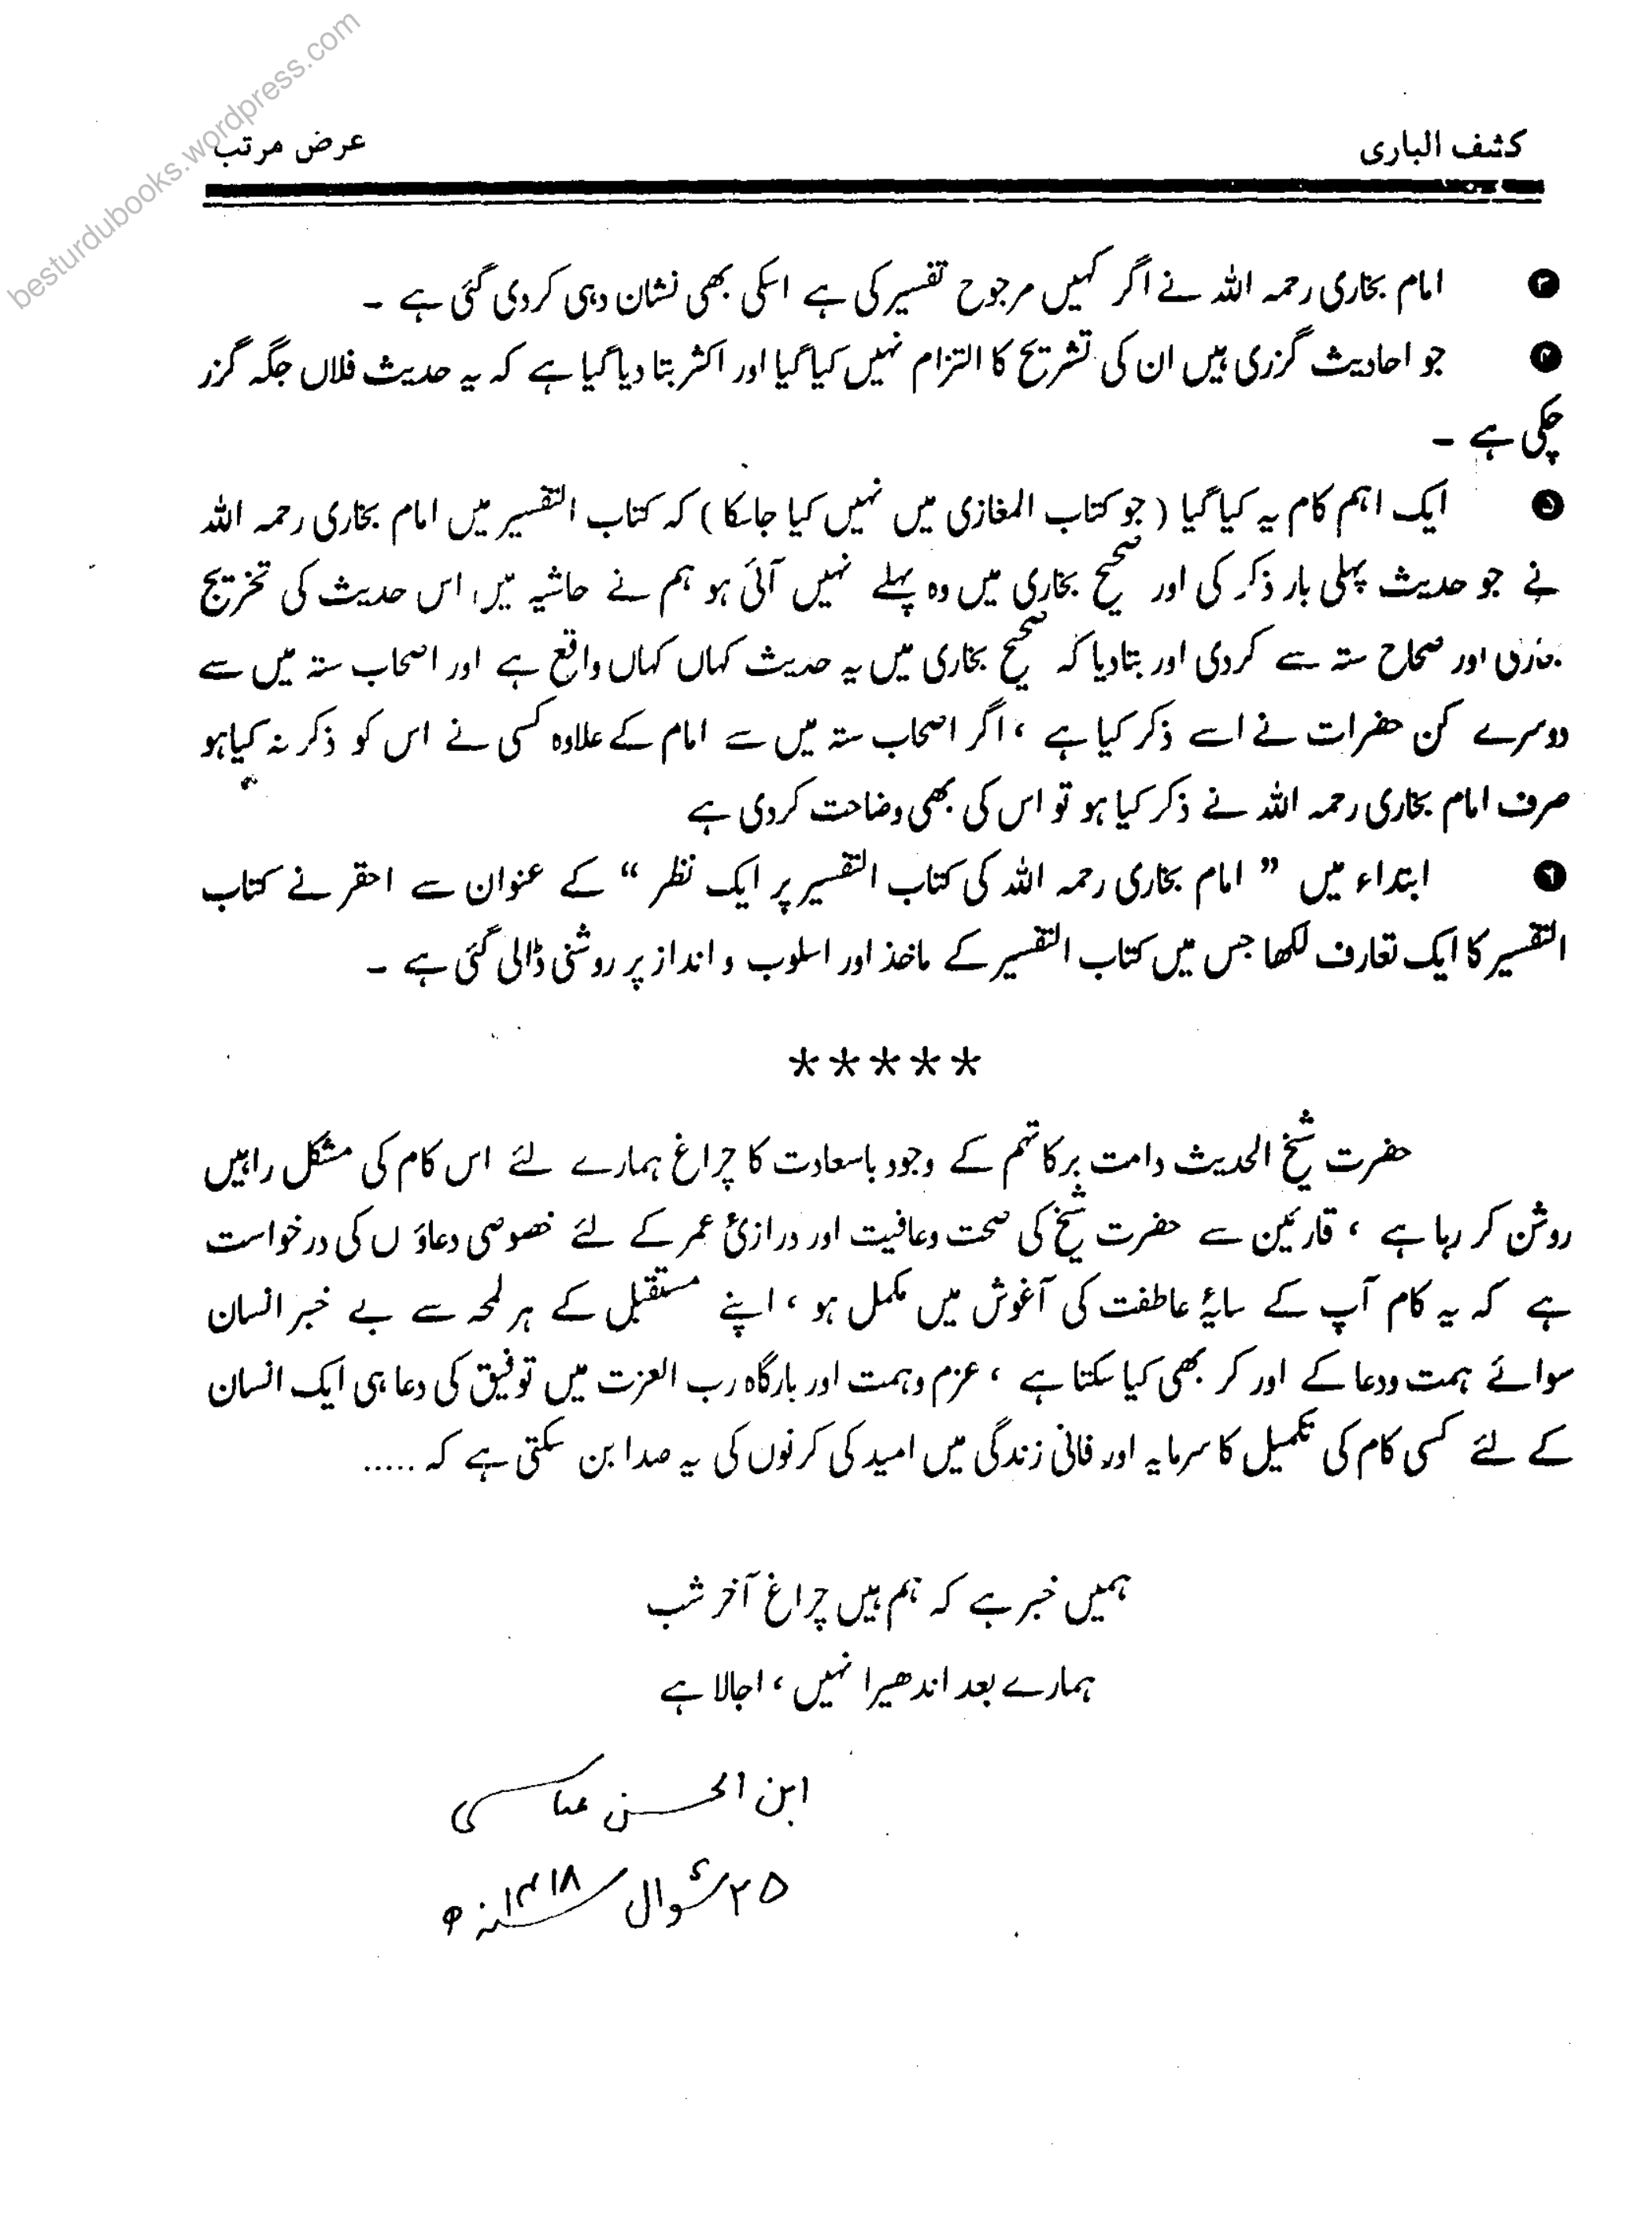 besturdubooks.wordpress.com
کشف الباری
عرض مرتب
❸ امام بخاری رحمہ اللہ نے اگر کہیں مرجوح تفسیر کی ہے اسکی بھی نشان دہی کردی گئی ہے ۔
❹ جو احادیث گزری ہیں ان کی تشریح کا التزام نہیں کیا گیا اور اکثر بتا دیا گیا ہے کہ یہ حدیث فلاں جگہ گزر
چکی ہے ۔
❺ ایک اہم کام یہ کیا گیا ( جو کتاب المغازی میں نہیں کیا جاسکا ) کہ کتاب التفسیر میں امام بخاری رحمہ اللہ
نے جو حدیث پہلی بار ذکر کی اور صحیح بخاری میں وہ پہلے نہیں آئی ہو ہم نے حاشیہ میں اس حدیث کی تخریج
بخاری اور صحاح ستہ سے کردی اور بتادیا کہ صحیح بخاری میں یہ حدیث کہاں کہاں واقع ہے اور اصحاب ستہ میں سے
دوسرے کن حضرات نے اسے ذکر کیا ہے ، اگر اصحاب ستہ میں سے امام کے علاوہ کسی نے اس کو ذکر نہ کیا ہو
صرف امام بخاری رحمہ اللہ نے ذکر کیا ہو تو اس کی بھی وضاحت کردی ہے
❻ ابتداء میں ” امام بخاری رحمہ اللہ کی کتاب التفسیر پر ایک نظر “ کے عنوان سے احقر نے کتاب
التفسیر کا ایک تعارف لکھا جس میں کتاب التفسیر کے ماخذ اور اسلوب و انداز پر روشنی ڈالی گئی ہے ۔
*****
حضرت شیخ الحدیث دامت برکاتہم کے وجود باسعادت کا چراغ ہمارے لئے اس کام کی مشکل راہیں
روشن کر رہا ہے ، قارئین سے حضرت شیخ کی صحت وعافیت اور درازئ عمر کے لئے خصوصی دعاؤں کی درخواست
ہے کہ یہ کام آپ کے سایۂ عاطفت کی آغوش میں مکمل ہو ، اپنے مستقبل کے ہر لمحہ سے بے خبر انسان
سوائے ہمت ودعا کے اور کر بھی کیا سکتا ہے ، عزم وہمت اور بارگاہ رب العزت میں توفیق کی دعا ہی ایک انسان
کے لئے کسی کام کی تکمیل کا سرمایہ اور فانی زندگی میں امید کی کرنوں کی یہ صدا بن سکتی ہے کہ .....
ہمیں خبر ہے کہ ہم ہیں چراغ آخر شب
ہمارے بعد اندھیرا نہیں ، اجالا ہے
ابن الحسن عباسی
۲۵ شوال ۱۴۱۸ھ